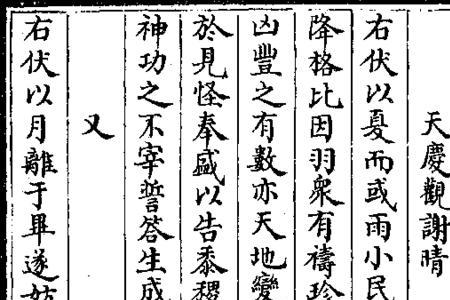 天慶觀謝晴
右伏以夏而或雨小民
降格比因羽衆有禱珍
凶豐之有數亦天地變
於見怪奉盛以告黍稷
神功之不宰誓答生成
又
右伏以月離于畢遂妨